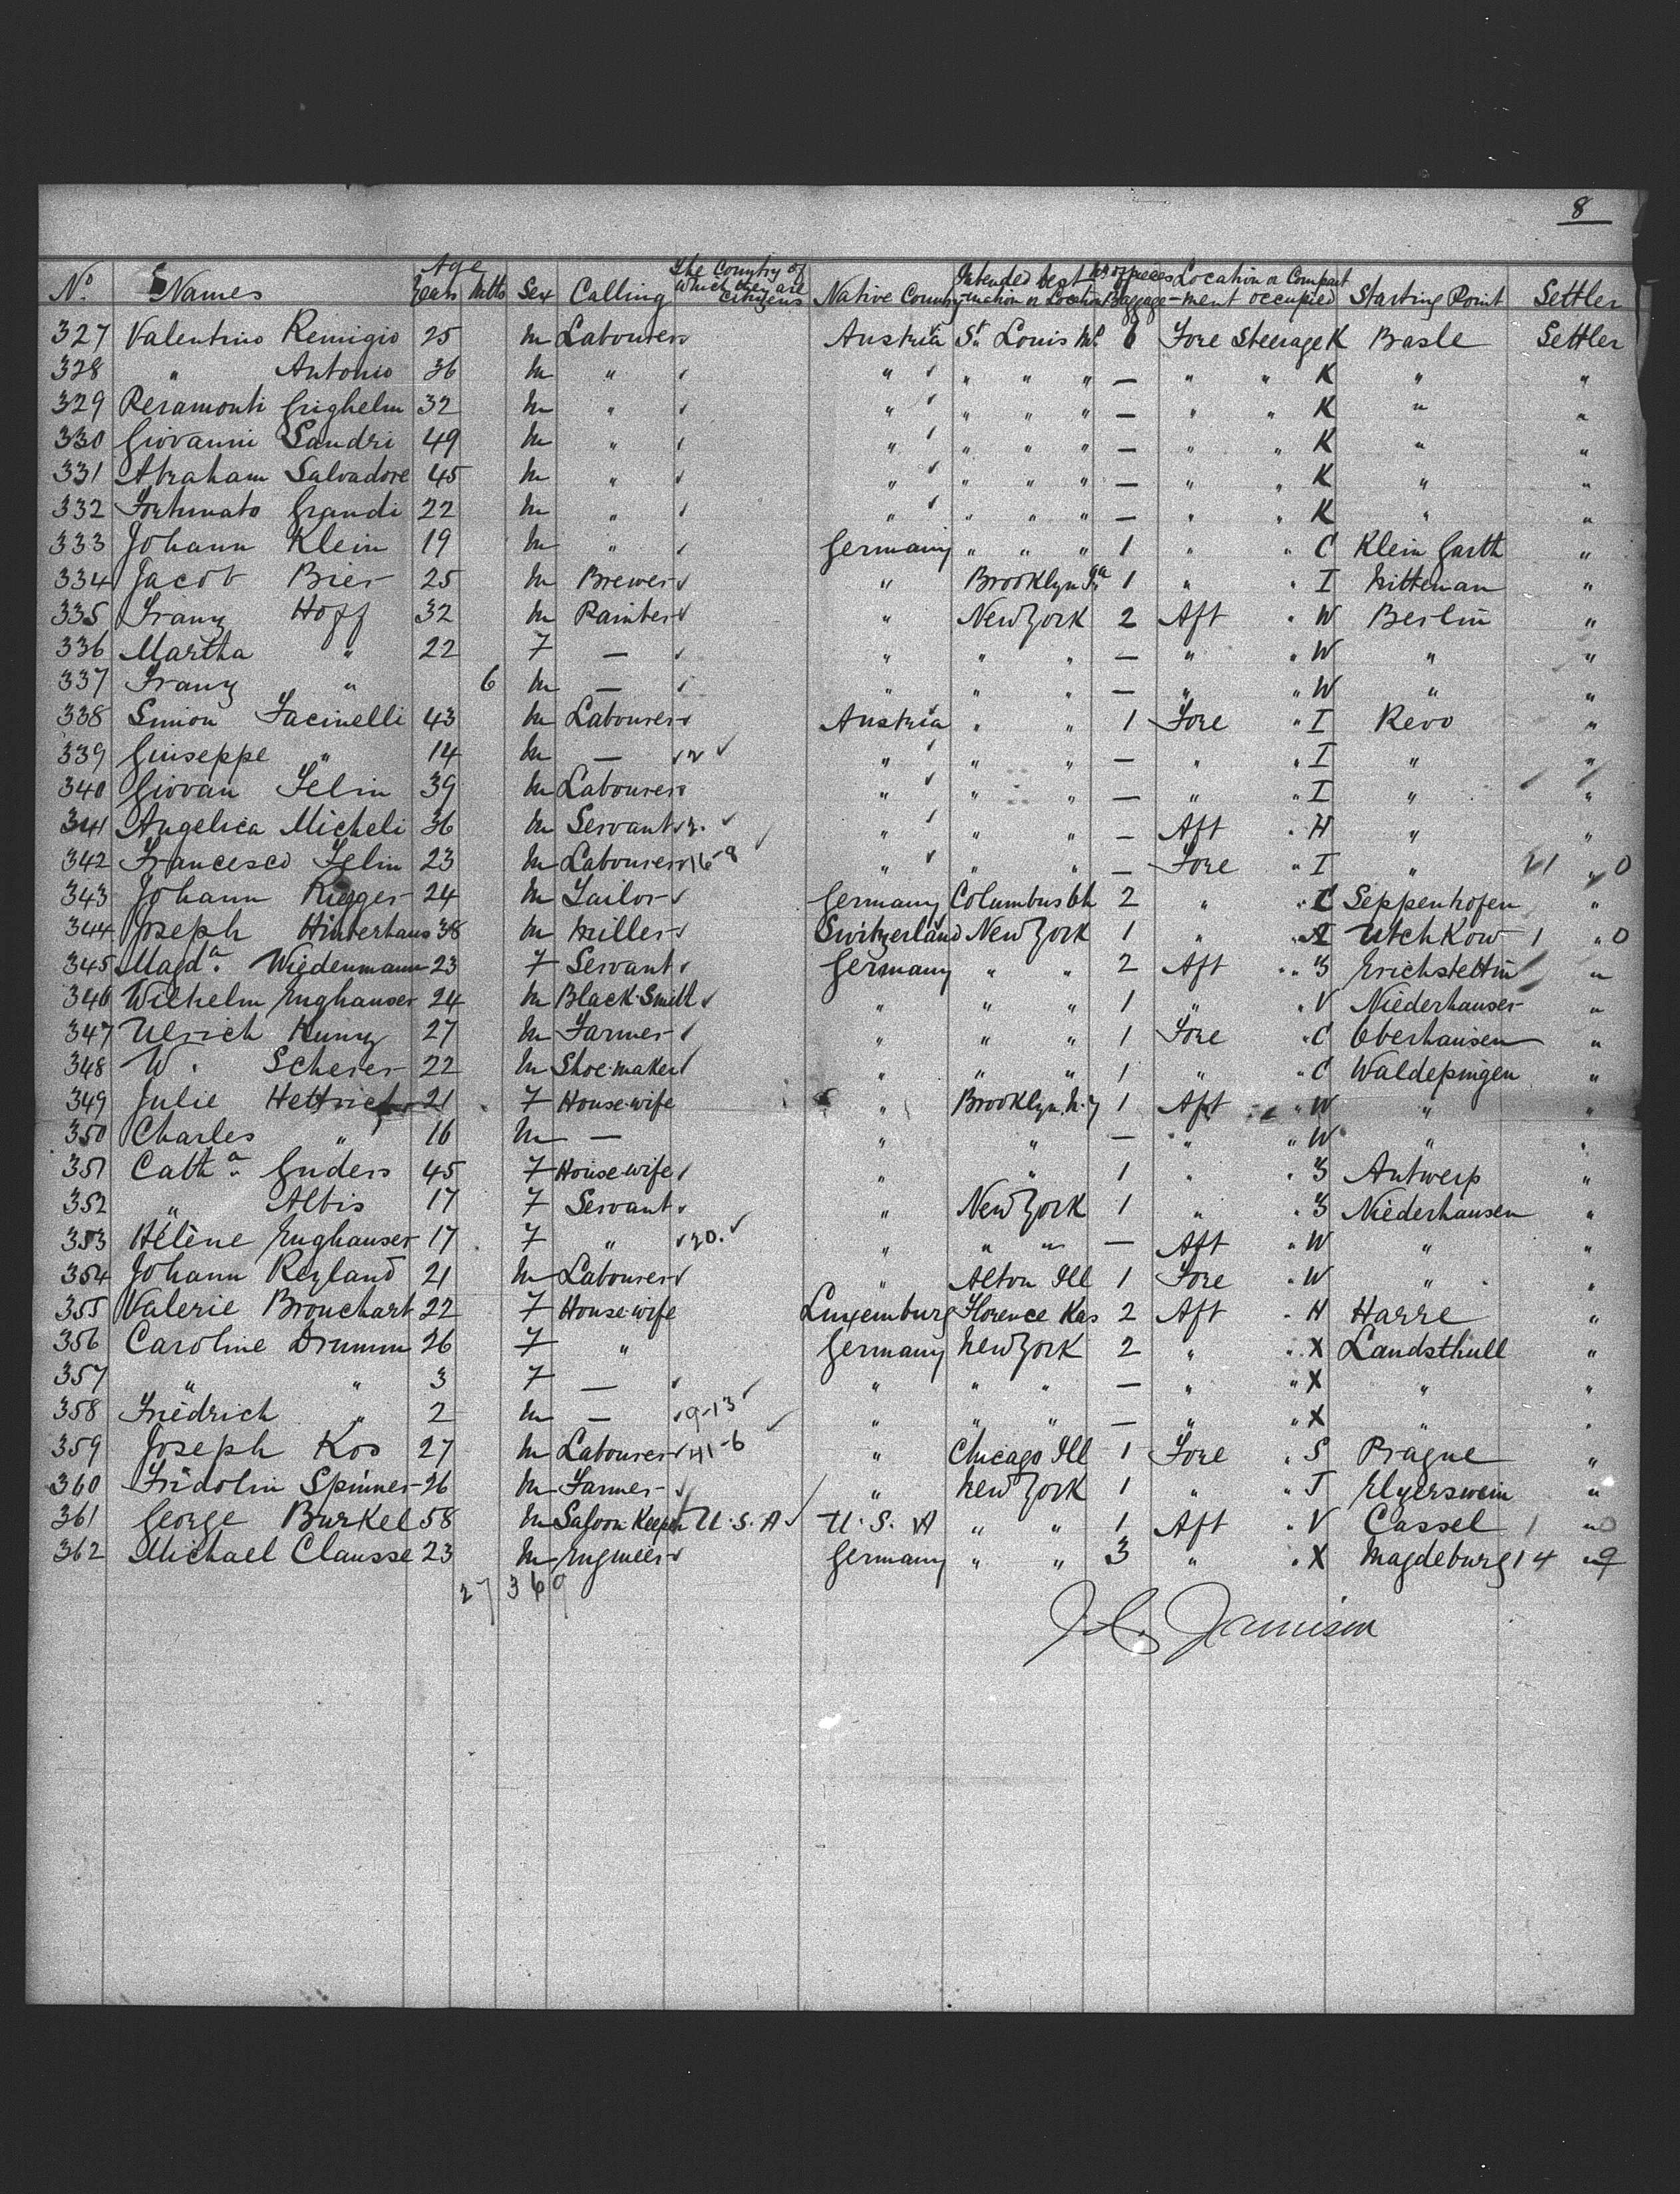 8
No. Names Age Years Mths Sex Calling The Country of which they are Citizens Native Country Intended Destination or Location No. of pieces of Baggage Location or Compartment occupied Starting Point Settler
327 Valentino Remigio 25 M Labourer Austria St. Louis Mo. 6 Fore Steerage K Basle Settler
328 " Antonio 36 M " " " " " — " " K " "
329 Peramonti Grighelm 32 M " " " " " — " " K " "
330 Giovanni Sandri 49 M " " " " " — " " K " "
331 Abraham Salvadore 45 M " " " " " — " " K " "
332 Fortunato Grandi 22 M " " " " " — " " K " "
333 Johann Klein 19 M " Germany " " " 1 " " C Klein Garth "
334 Jacob Bier 25 M Brewer " Brooklyn 1 " " I Mitteman "
335 Franz Hoff 32 M Painter " New York 2 Aft " W Berlin "
336 Martha " 22 F — " " " — " " W " "
337 Franz " 6 M — " " " — " " W " "
338 Simon Facinelli 43 M Labourer Austria " " 1 Fore " I Revo "
339 Guiseppe " 14 M — " " " — " " I " "
340 Giovan Felin 39 M Labourer " " " — " " I " "
341 Angelica Micheli 36 M Servant " " " — Aft " H " "
342 Francesco Felin 23 M Labourer 16-8 " " " — Fore " I " 21 " 0
343 Johann Rieger 24 M Tailor Germany Columbus Oh 2 " " C Seppenhofen "
344 Joseph Hinterhaus 38 M Miller Switzerland New York 1 " " Utchkow 1 " 0
345 Magda. Wiedenmann 23 F Servant Germany " " 2 Aft " " Erichstettin "
346 Wilhelm Enghauser 24 M Black-Smith " " " 1 " " V Niederhauser "
347 Ulrich Kunz 27 M Farmer " " " 1 Fore " C Oberhausen "
348 W. Scherer 22 M Shoe-maker " " " 1 " " C Waldepingen "
349 Julie Hettrich 21 F House-wife " Brooklyn N.Y 1 Aft " W " "
350 Charles " 16 M — " " — " " W " "
351 Catha. Guders 45 F House-wife " " 1 " " Antwerp "
352 " Albis 17 F Servant " New York 1 " " Niederhausen "
353 Hélène Enghauser 17 F " 20. " " " — Aft " W " "
354 Johann Rezland 21 M Labourer " Alton Ill 1 Fore " W " "
355 Valerie Brouchart 22 F House-wife Luxemburg Florence Kas 2 Aft " H Harre "
356 Caroline Drumm 26 F " Germany New York 2 " " X Landsthull "
357 " " 3 F — " " " — " " X " "
358 Friedrich " 2 M — 9-13 " " " — " " X " "
359 Joseph Kos 27 M Labourer 41-6 " Chicago Ill 1 Fore " S Prague "
360 Fridolin Spinner 26 M Farmer " New York 1 " " T Elyerswein "
361 George Burkel 58 M Saloon Keeper U.S.A U.S.A " " 1 Aft " V Cassel 1 " 0
362 Michael Clausse 23 M Engineer Germany " " 3 " " X Magdeburg 14 " 9
27 369
Jamison